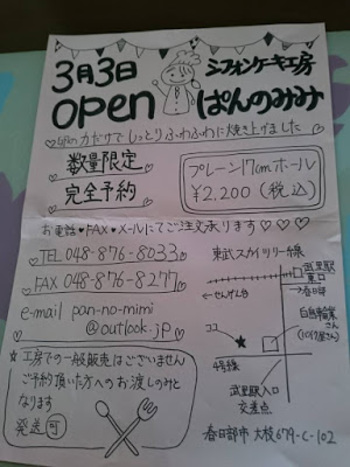 3月3日
open
シフォンケーキ工房
ぱんのみみ
力だけでしっとりふわふわに焼き上げました
数量限定
完全予約
プレーン17cmホール
¥2,200(税込)
お電話♥FAX♥メールにてご注文承ります♡♡♡
TEL 048-876-8033
FAX 048-876-8277
e-mail pan-no-mimi
@outlook.jp
☆工房での一般販売はございません
ご予約頂いた方へのお渡しのみと
なります
発送可
東武スカイツリー線
武里駅
東口
←せんげん台
→春日部
白鳥輪業
さん
(バイク屋さん)
ココ
★
4号線
武里駅入口
交差点
春日部市 大枝679-C-102